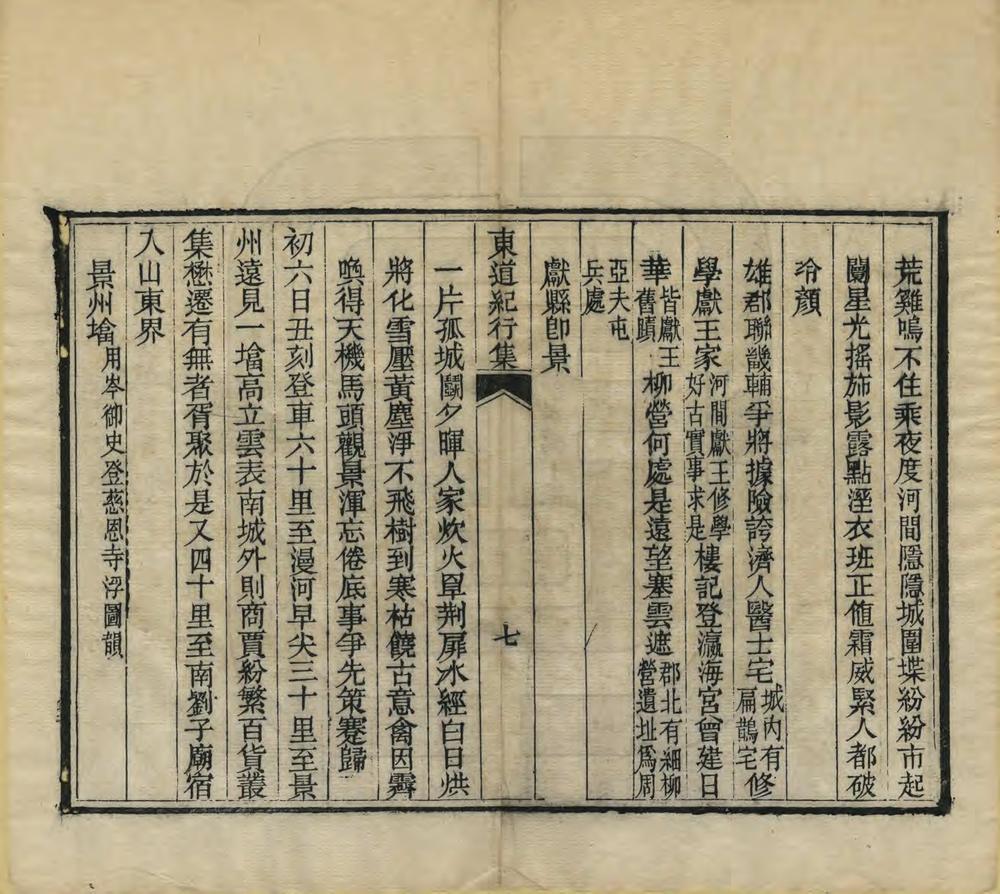 荒雞鳴不住乘夜度河間隱隱城圍堞紛紛市起
闤星光搖斾影露點溼衣班正値霜威緊人都破
冷顏
雄郡聯畿輔爭將據險誇濟人醫士宅城內有扁鵲宅修
學獻王家河間獻王修學好古實事求是樓記登瀛海宮曾建日
華皆獻王舊蹟柳營何處是遠望塞雲遮郡北有細柳營遺址爲周
亞夫屯兵處
獻縣卽景
東道紀行集
七
一片孤城鬭夕暉人家炊火早荆扉冰經白日烘
將化雪壓黃塵淨不飛樹到寒枯饒古意禽因霽
喚得天機馬頭觀景渾忘倦底事爭先策蹇歸
初六日丑刻登車六十里至漫河早尖三十里至景
州遠見一墖高立雲表南城外則商賈紛繁百貨叢
集懋遷有無者胥聚於是又四十里至南劉子廟宿
入山東界
景州墖用岑御史登慈恩寺浮圖韻